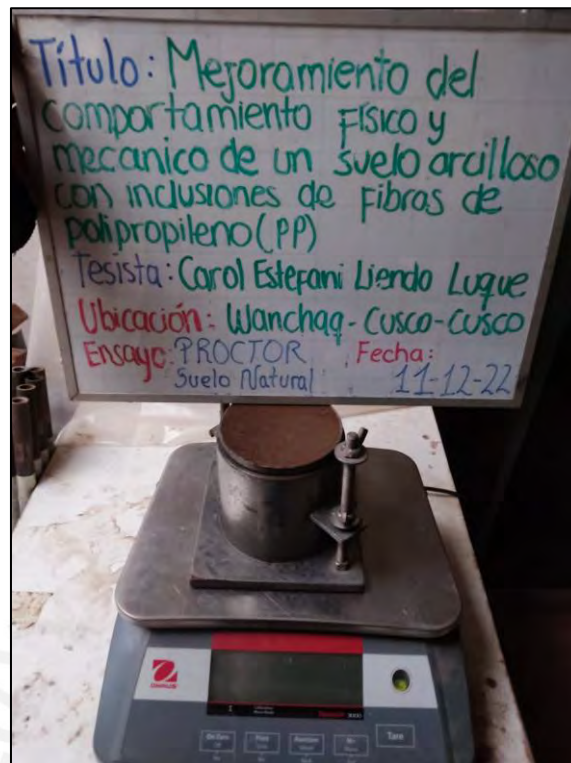 Título: Mejoramiento del
comportamiento Físico y
mecanico de un suelo arcilloso
con inclusiones de Fibras de
polipropileno (PP)
Tesista: Carol Estefani Liendo Luque
Ubicación: Wanchaq - Cusco - Cusco
Ensayo: PROCTOR Fecha:
Suelo Natural 11-12-22
OHAUS
Tare